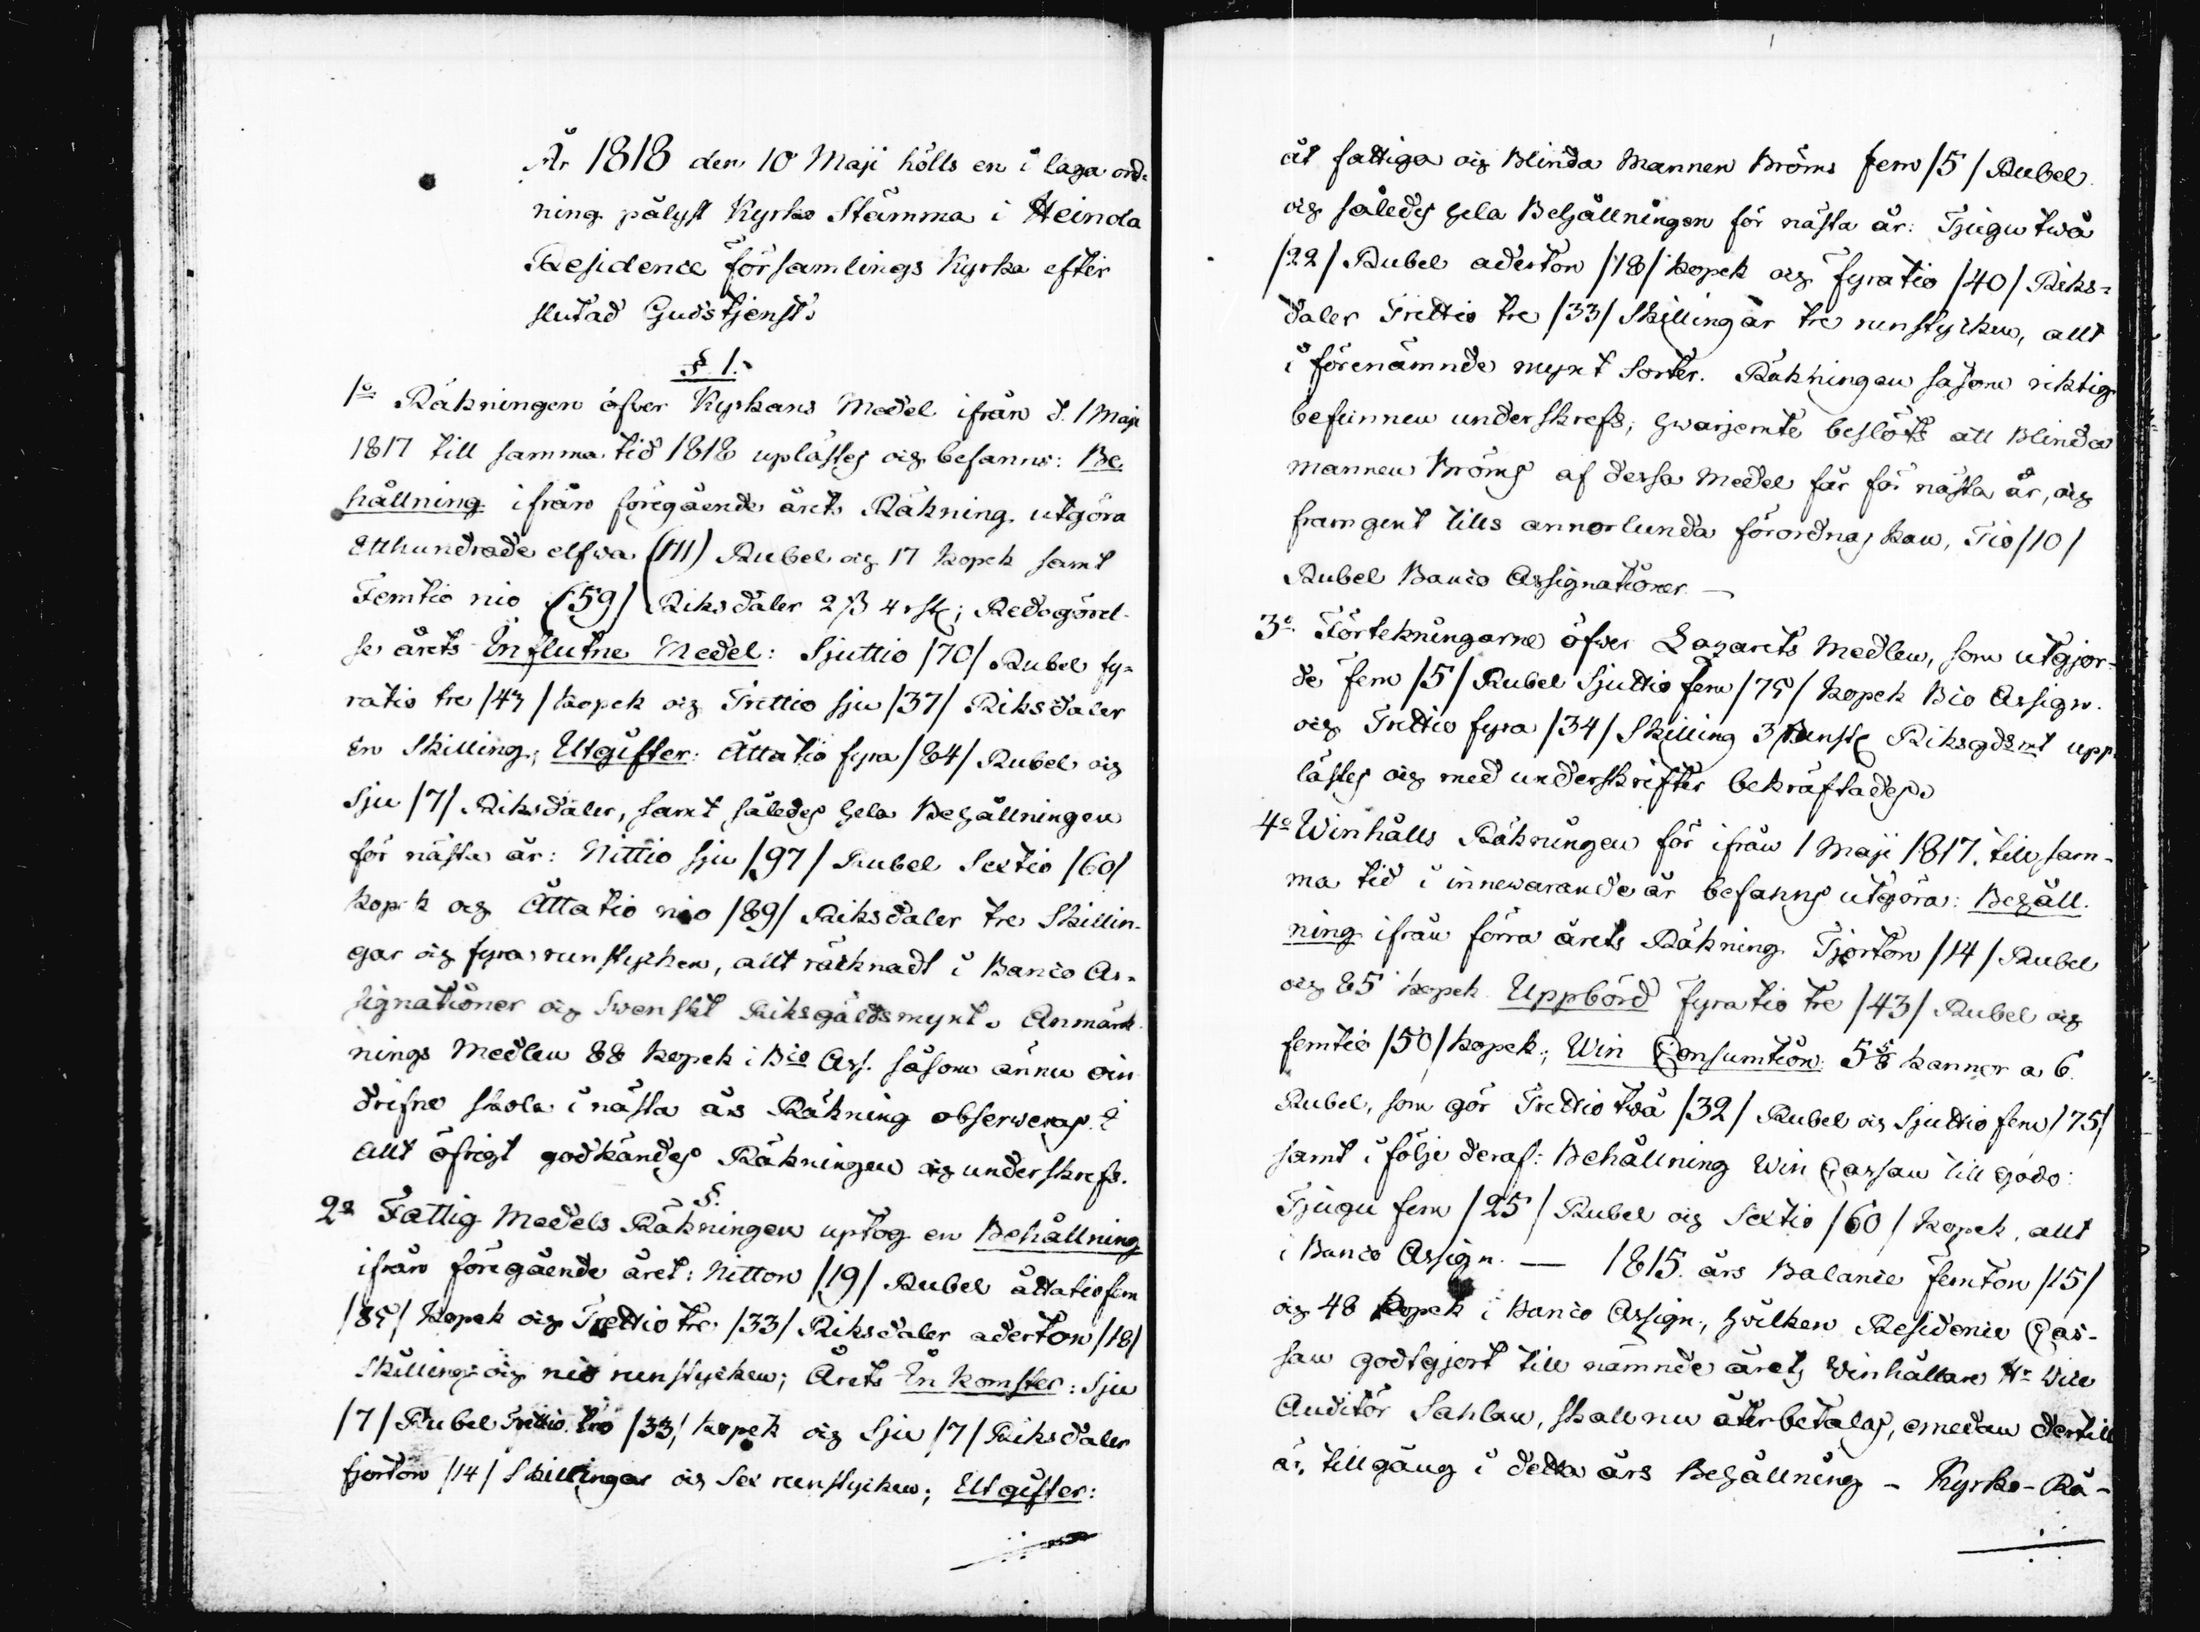 År 1818 den 10 Maji hölls en i laga ord-
ning pålyst Kyrko Stämma i Heinola
Residence församlings Kyrka efter
slutad Gudstjenst.
§ 1.
1o Räkningen öfver Kyrkans Medel ifrån d. 1 Maji
1817 till samma tid 1818 uplästes och befanns: Be-
hållning ifrån föregående årets Räkning utgöra
Etthundrade elfva (111) Rubel och 17 kopek samt
Femtio nio (59) Riksdaler 2 ß 4 rst; Redogörel-
se årets Influtne Medel: Sjuttio /70/ Rubel fy-
ratio tre /43/ kopek och Trettio sju /37/ Riksdaler
En Skilling; Utgifter: Åttatio fyra /84/ Rubel och
Sju /7/ Riksdaler, samt således hela Behållningen
för nästa år: Nittio sju /97/ Rubel Sextio /60/
kopek och Åttatio nio /89/ Riksdaler tre Skillin-
gar och fyra runstycken, allt räcknadt i Banco As-
signationer och Svenskt Riksgäldsmynt. Anmärk-
nings Medlen 88 kopek i Bco Ass. såsom ännu oin-
drifne skola i nästa års Räkning observeras. I
allt öfrigt godkändes Räkningen och underskrefs.
§.
2o Fattig Medels Räkningen uptog en Behållning
ifrån föregående året: Nitton /19/ Rubel åttatiofem
/85/ kopek och Trettio tre /33/ Riksdaler aderton /18/
Skilling och nio runstycken; Årets Inkomster: Sju
/7/ Rubel Trettio tre /33/ kopek och Sju /7/ Riksdaler
fjorton /14/ Skillingar och Sex runstycken; Utgifter:
åt fattiga och Blinda Mannen Bröms fem /5/ Rubel
och således hela Behållningen för nästa år: Tjugu två
/22/ Rubel aderton /18/ kopek och fyratio /40/ Riks-
daler Trettio tre /33/ Skillingar tre runstycken, allt
i förenämnde mynt Sorter. Räkningen såsom riktig
befunnen underskrefs; hwarjemte beslöts att Blinda
mannen Bröms af dessa Medel får för nästa år, och
framgent tills annorlunda förordnas kan, Tio /10/
Rubel Banco Assignationer. —
3o Förtekningarne öfver Lazarets Medlen, som utgjor-
de fem /5/ Rubel Sjuttio fem /75/ kopek Bco Assign.
och Trettio fyra /34/ Skilling 3 runst Riksgdsmt upp-
lästes och med underskrifter bekräftades.
4o Winhålls Räkningen för ifrån 1 Maji 1817. till sam-
ma tid i innewarande år befanns utgöra: Behåll-
ning ifrån förra årets Räkning Fjorton /14/ Rubel
och 85 kopek. Uppbörd fyratio tre /43/ Rubel och
femtio /50/ kopek; Win Consumtion: 5 5/8 kannor a 6.
Rubel, som gör Trettio två /32/ Rubel och Sjuttio fem /75/
samt i följe deraf: Behållning Win Cassan till godo:
Tjugu fem /25/ Rubel och Sextio /60/ kopek, allt
i Banco Assign. — 1815. års Balance femton /15/
och 48 kopek i Banco Assign., hvilken Residence Cas-
san godtgjort till nämnde årets Winhållare Hr Vice
Auditör Sahlan, skall nu återbetalas, emedan dertill
är, tillgång i detta års Behållning – Kyrko-Rå-